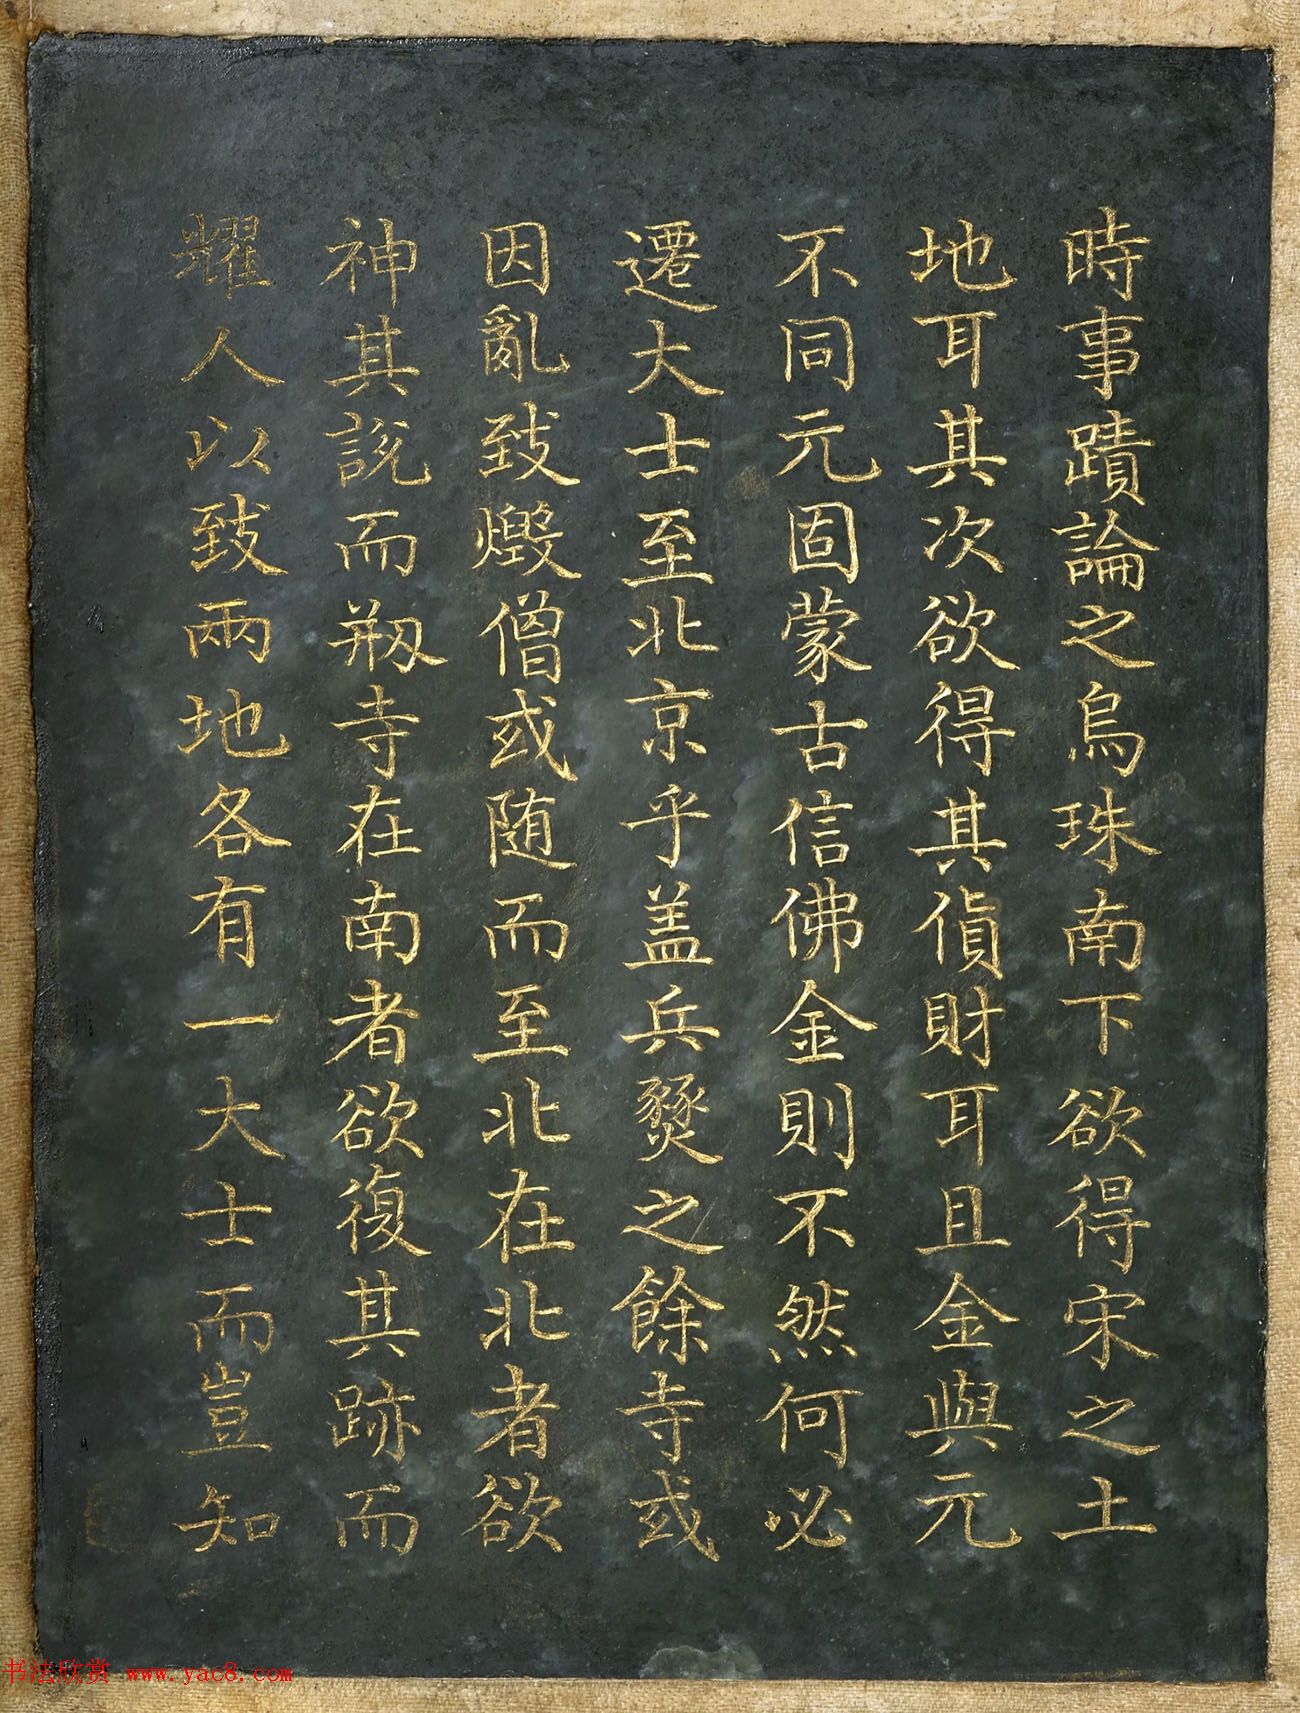 時事蹟論之烏珠南下欲得宋之土
地耳其次欲得其貨財耳且金與元
不同元固蒙古信佛金則不然何必
遷大士至北京乎盖兵燹之餘寺或
因亂致燬僧或随而至北在北者欲
神其説而剏寺在南者欲復其跡而
耀人以致兩地各有一大士而豈知
书法欣赏 www.yac8.com